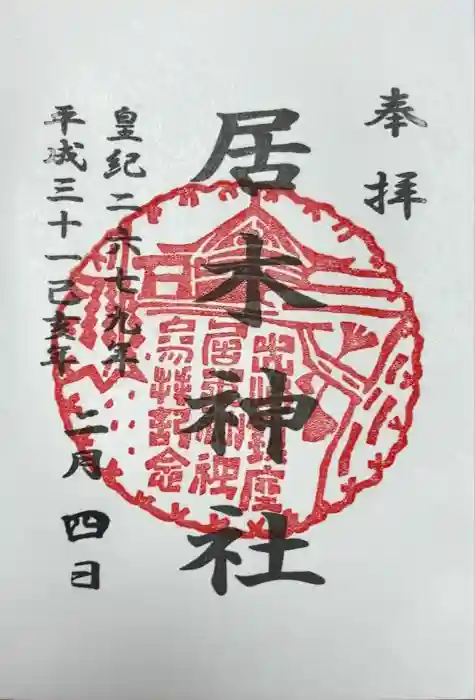 奉拝
居木神社
皇紀二六七九年
平成三十一己亥年 二月 四日
居木神社
参拝記念